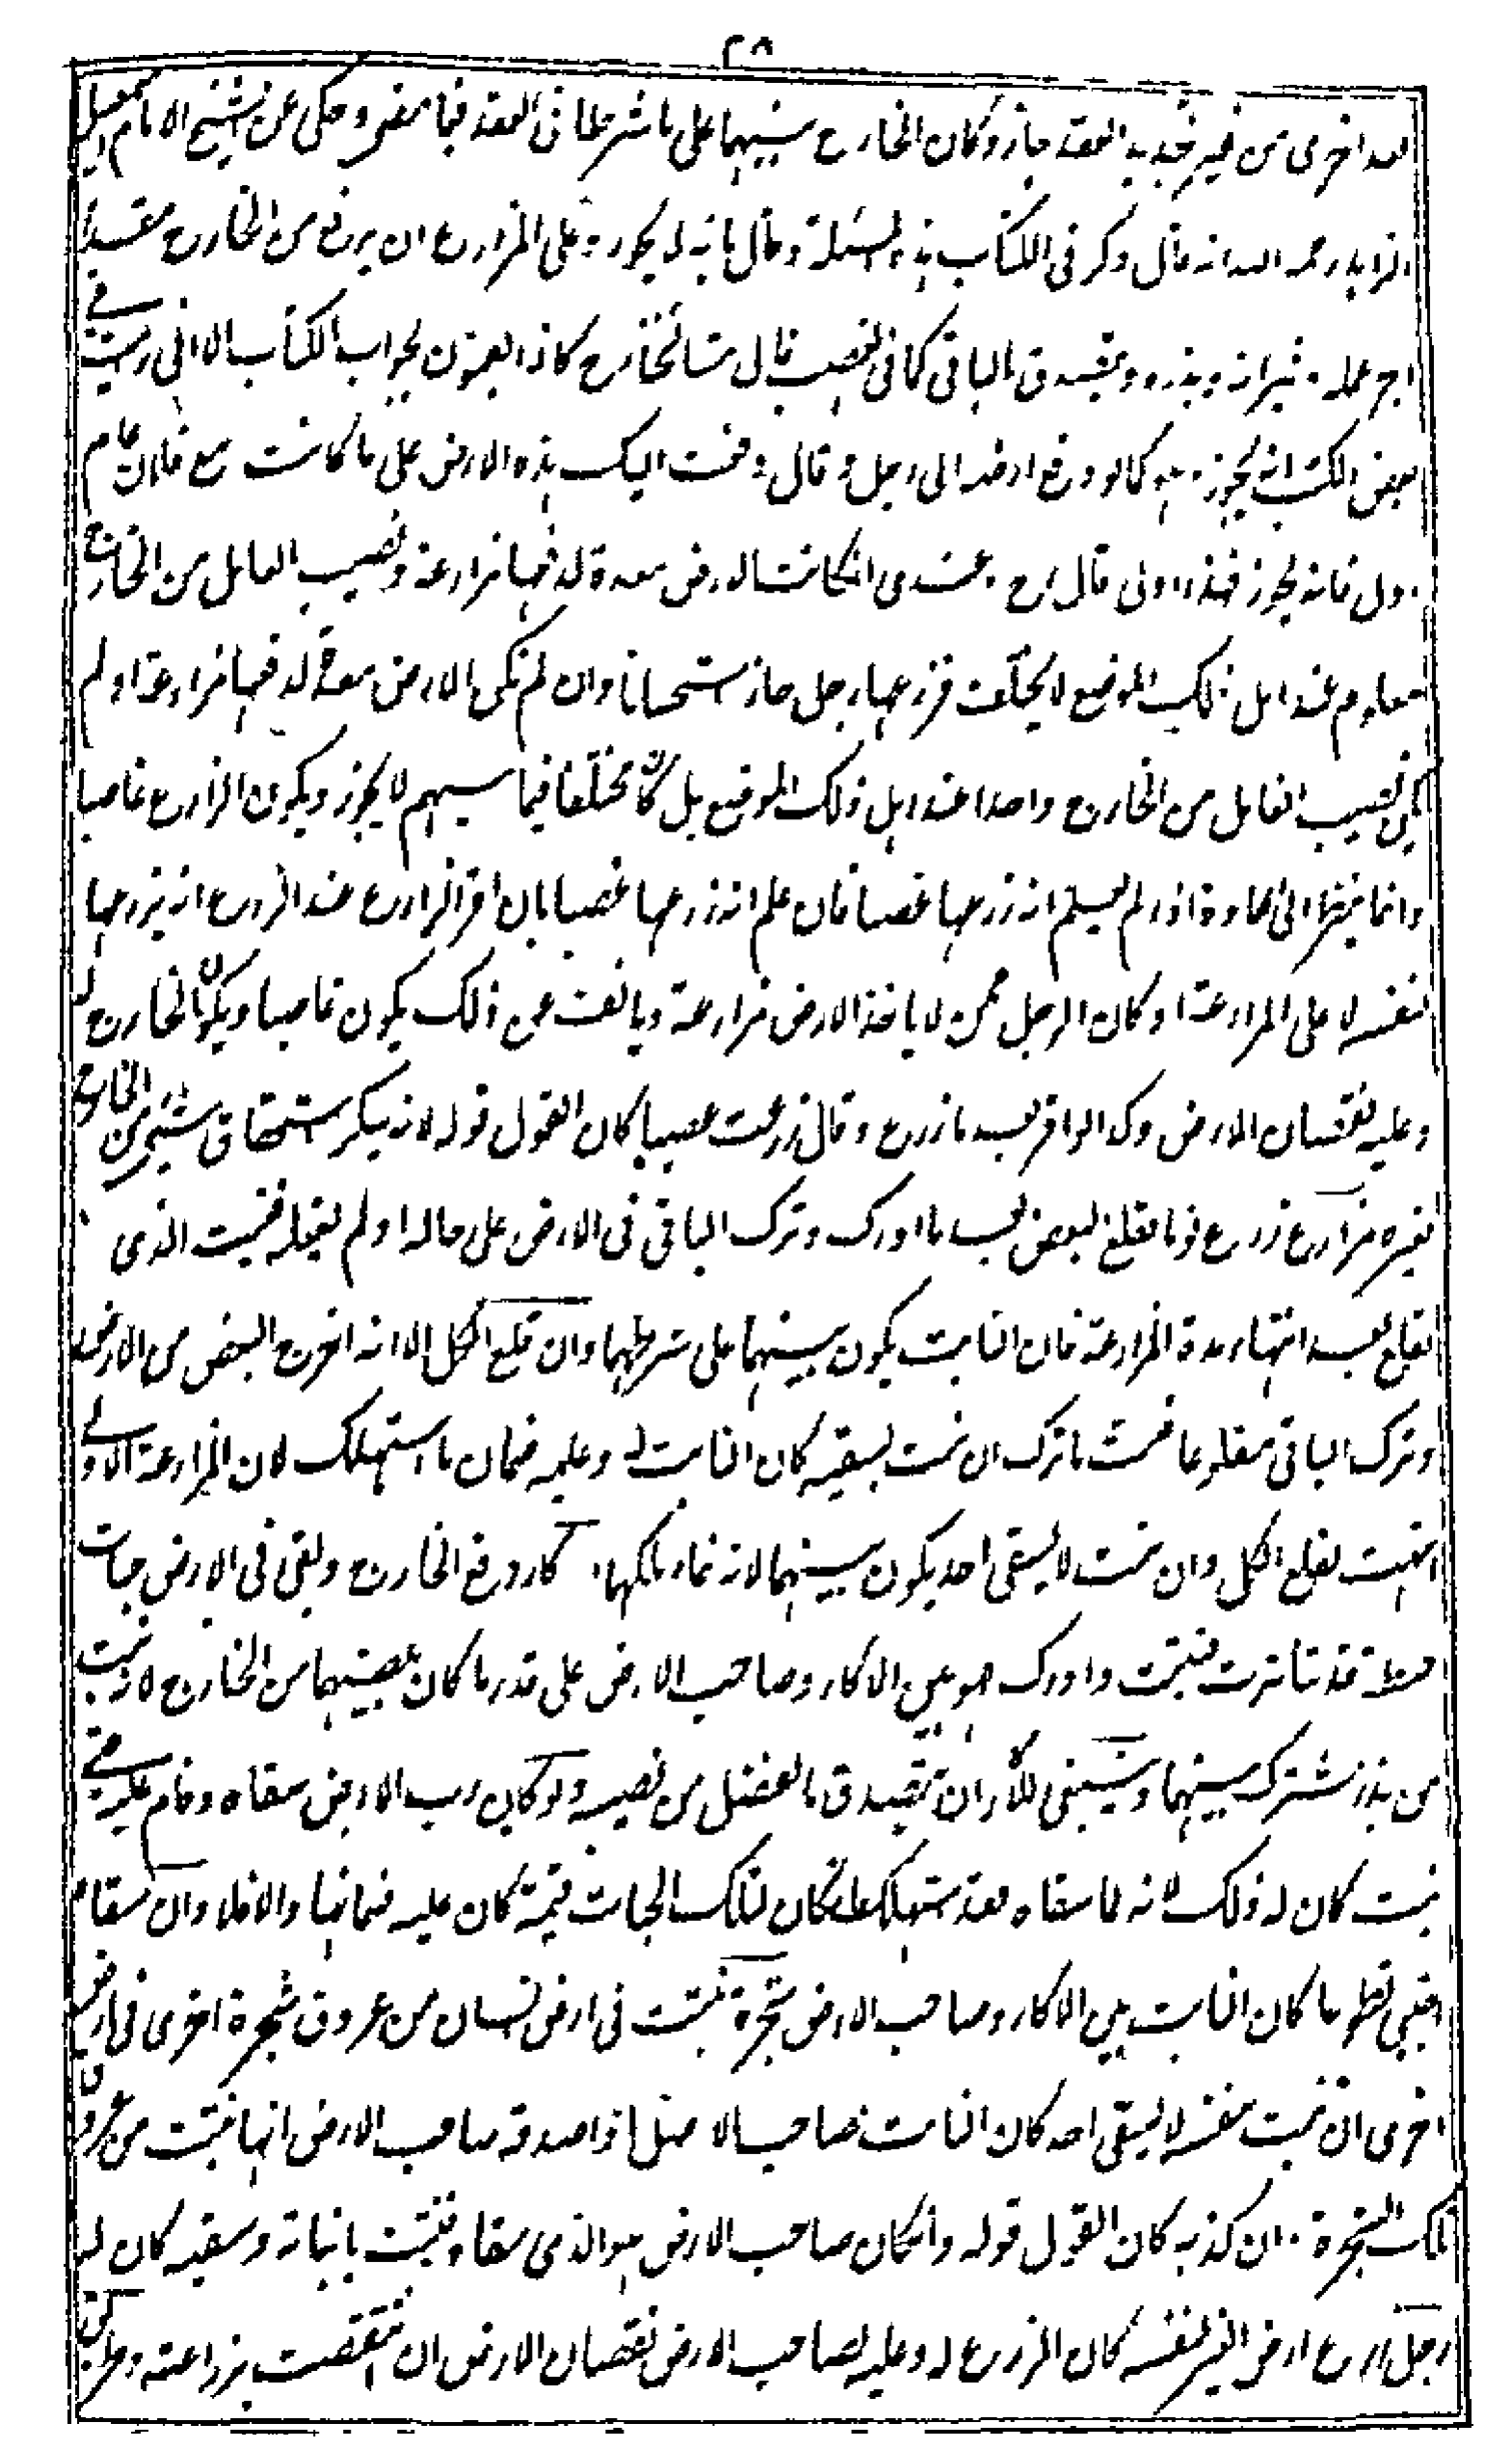 ٢٨
اخرى من غير تجديد العقد جاز وكان الخارج بينهما على ما شرطا فى العقد فيما مضى وحكى عن الشيخ الامام اسمعيل
الزاهد رحمه الله انه قال ذكر فى الكتاب هذه المسئلة وقال بانه لا يجوز وعلى المزارع ان يرفع من الخارج مقدار
اجر عمله وثيرانه وبذره ويتصدق بالباقى كما فى الغصب قال مشائخنا رح كانوا يفتون بجواب الكتاب الا انى رأيت فى
بعض الكتب انه يجوز وهو كما لو دفع ارضه الى رجل وقال دفعت اليك هذه الارض على ما كانت مع فلان عام
اول فانه يجوز فهذا اولى قال رح وعندى انكانت الارض معدة لدفعها مزارعة ونصيب العامل من الخارج
معلوم عند اهل ذلك الموضع لا يختلف فزرعها رجل جاز استحسانا وان لم تكن الارض معدة لدفعها مزارعة او لم
يكن نصيب العامل من الخارج واحدا عند اهل ذلك الموضع بل كان مختلفا فيما بينهم لا يجوز ويكون الزارع غاصبا
وانما ينظر الى العادة اذا لم يعلم انه زرعها غصبا فان علم انه زرعها غصبا بان اقر الزارع عند الزرع انه يزرعها
لنفسه لا على المزارعة او كان الرجل ممن لا ياخذ الارض مزارعة ويانف عن ذلك يكون غاصبا ويكون الخارج له
وعليه نقصان الارض وكذا لو اقر بعد ما زرع وقال زرعت غصبا كان القول قوله لانه ينكر استحقاق شئ من الخارج
لغيره مزارع زرع ثوما فقلع البعض بعد ما ادرك وترك الباقى فى الارض على حاله او لم يقلعه فنبت الذى
لم يقلع بعد انتهاء مدة المزارعة فان النابت يكون بينهما على شرطهما وان قلع الكل الا انه اخرج البعض من الارض
وترك الباقى مقلوعا فنبت ما ترك ان نبت بسقيه كان النابت له وعليه ضمان ما استهلك لان المزارعة الاولى
انتهت بقلع الكل وان نبت لا بسقى احد يكون بينهما لانه نماء ملكهما اكار رفع الخارج وبقى فى الارض حبات
حنطة قد تناثرت فنبتت وادرك هو بين الاكار وصاحب الارض على قدر ما كان نصيبهما من الخارج لانه نبت
من بذر مشترك بينهما وينبغى للاكار ان يتصدق بالفضل من نصيبه ولو كان رب الارض سقاه وقام عليه حتى
نبت كان له ذلك لانه لما سقاه فقد استهلكها فان كان لتلك الحبات قيمة كان عليه ضمانها والا فلا وان سقاه
اجنبى تطوعا كان النابت بين الاكار وصاحب الارض شجرة نبتت فى ارض انسان من عروق شجرة اخرى فى ارض
اخرى ان نبتت بنفسه لا بسقى احد كان النابت لصاحب الاصل اذا صدقه صاحب الارض انها نبتت من عروق
تلك الشجرة وان كذبه كان القول قوله وانكان صاحب الارض هو الذى سقاه فنبتت بانباته وسقيه كان له
رجل زرع ارض الغير لنفسه كان الزرع له وعليه لصاحب الارض نقصان الارض ان انتقصت بزراعته